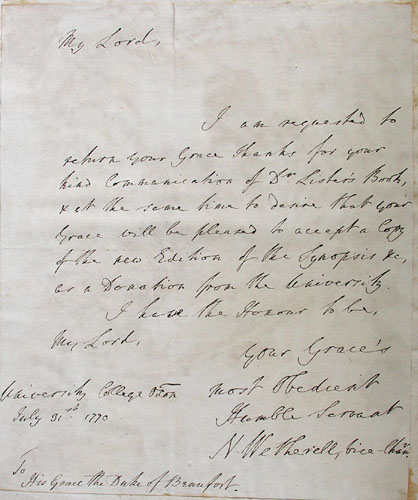 My Lord,
I am requested to
return your Grace Thanks for your
kind Communication of Dr Lister's Book,
& at the same time to desire that your
Grace will be pleased to accept a Copy
of the new Edition of the Synopsis &c,
as a Donation from the University.
I have the Honour to be,
My Lord,
Your Grace's
most Obedient
Humble Servant
N. Wetherell, Vice-Chanr.
University College Oxon
July 31st 1770
To
His Grace the Duke of Beaufort.